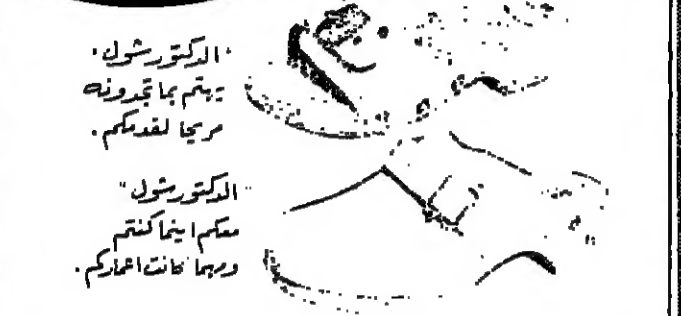 "الدكتور شول"
يهتم بما تجدونه
مريحا لقدمكم.
"الدكتور شول"
معكم اينما كنتم
ومهما كانت اعماركم.